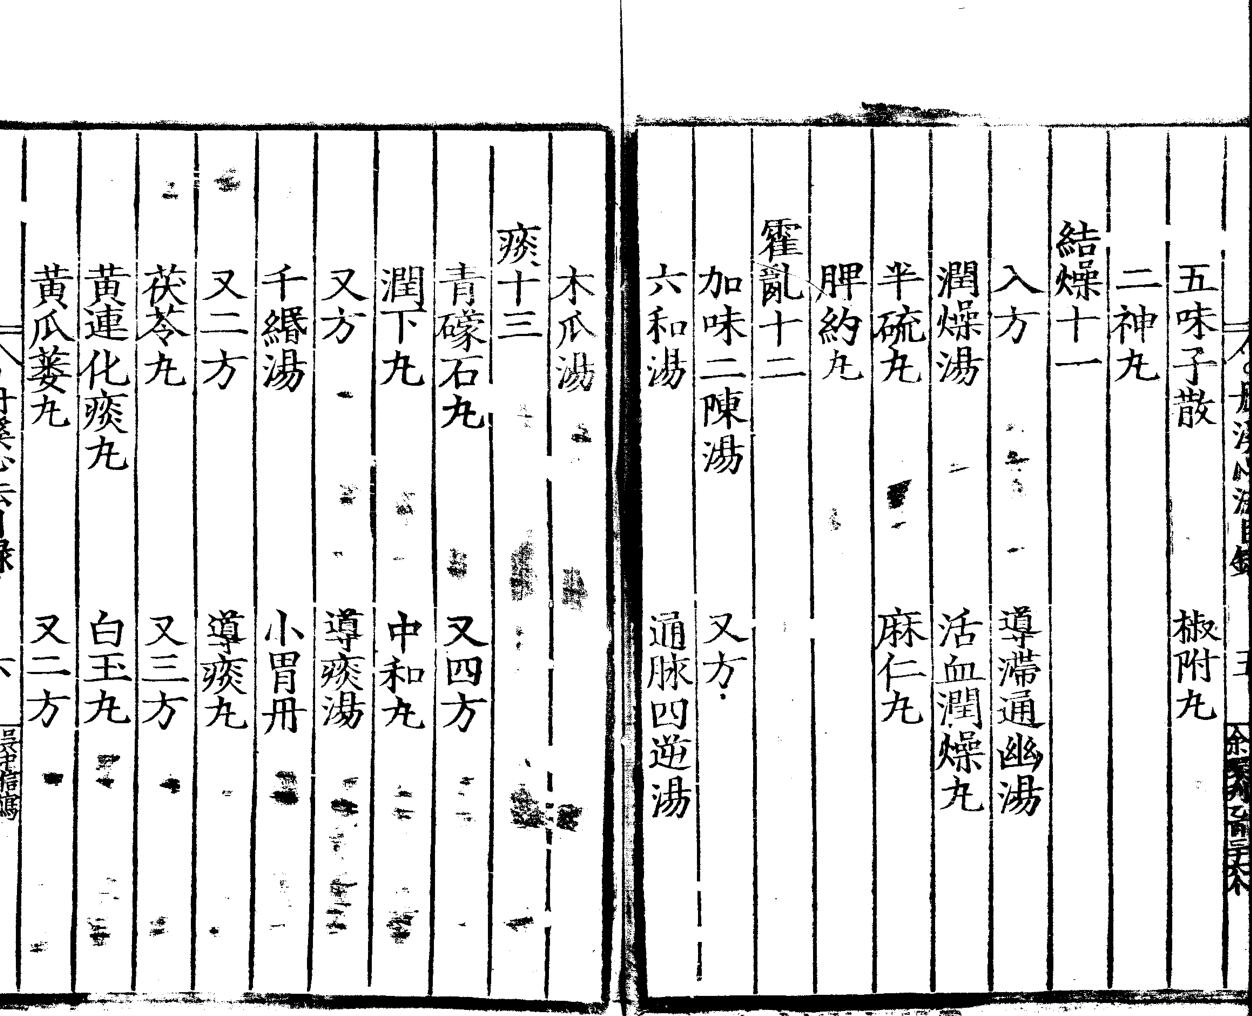 五味子散 椒附丸
二神丸
結燥十一
入方 導滯通幽湯
潤燥湯 活血潤燥丸
半硫丸 麻仁丸
脾約丸
霍亂十二
加味二陳湯 又方
六和湯 通脉四逆湯
木瓜湯
痰十三
青礞石丸 又四方
潤下丸 中和丸
又方 導痰湯
千緡湯 小胃丹
又二方 導痰丸
茯苓丸 又三方
黃連化痰丸 白玉丸
黃瓜蔞丸 又二方